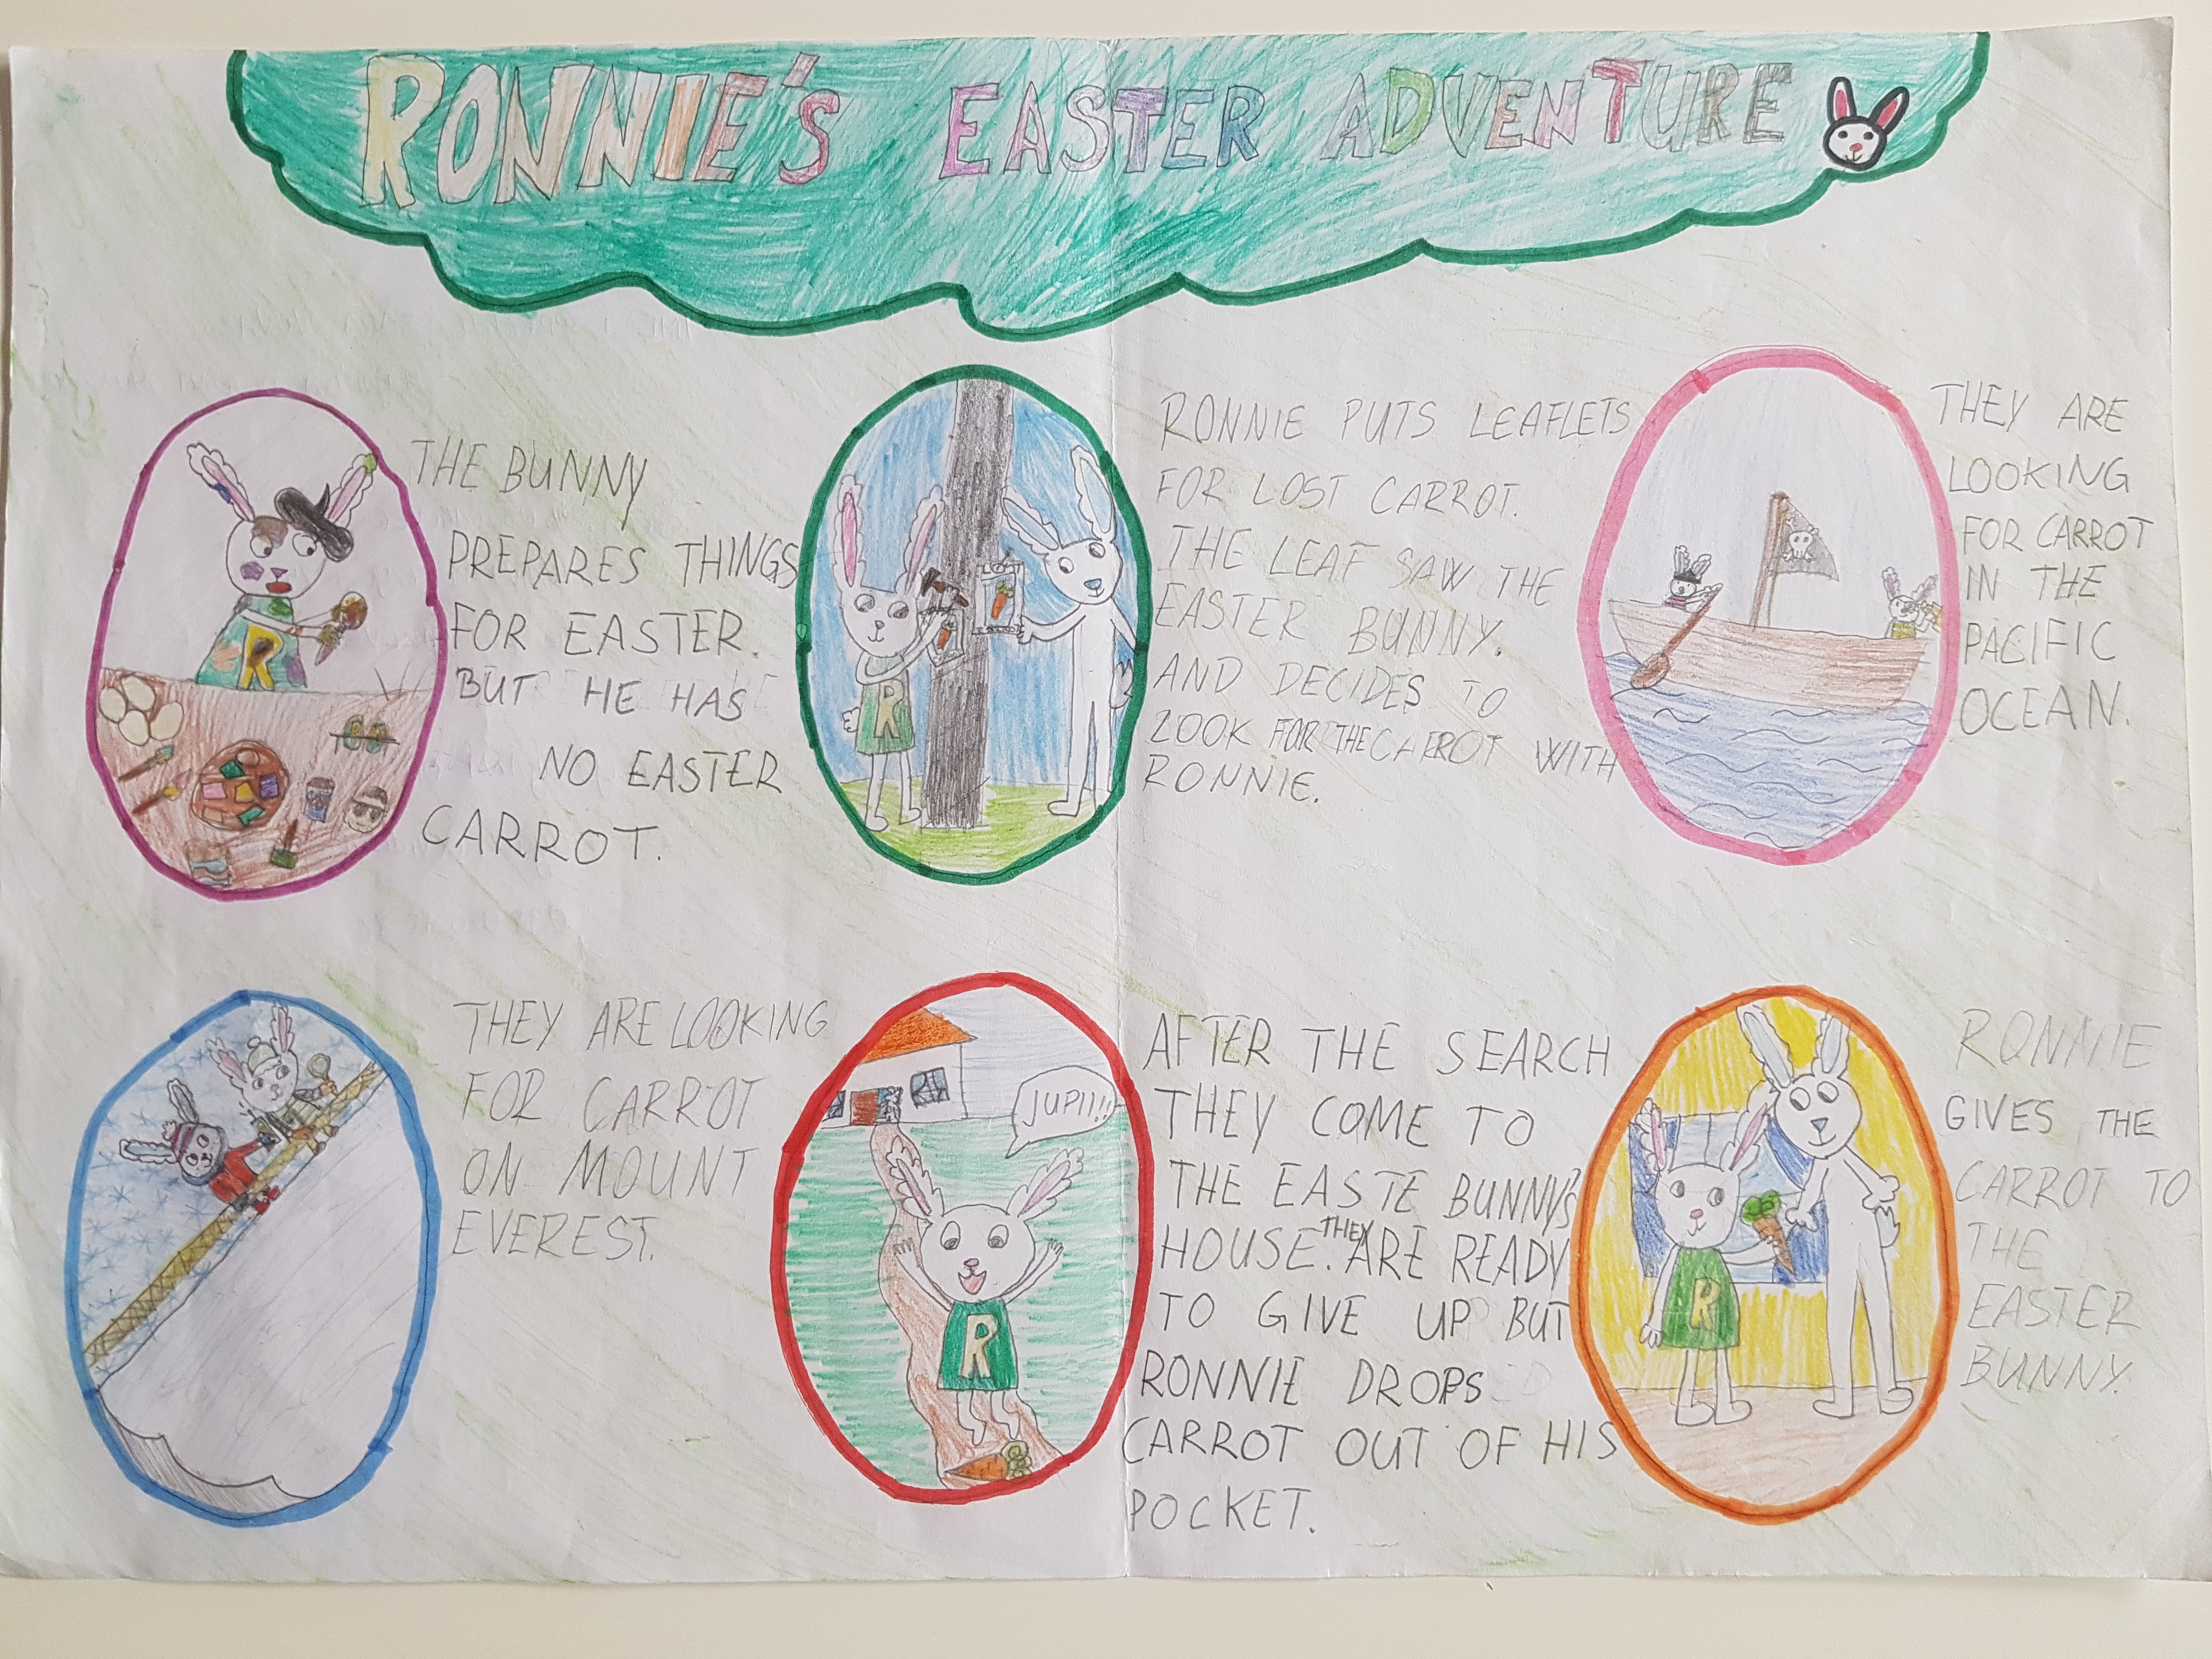 RONNIE'S EASTER ADVENTURE
THE BUNNY
PREPARES THINGS
FOR EASTER.
BUT HE HAS
NO EASTER
CARROT.
R
RONNIE PUTS LEAFLETS
FOR LOST CARROT.
THE LEAF SAW THE
EASTER BUNNY.
AND DECIDES TO
LOOK FOR THE CARROT WITH
RONNIE.
R
THEY ARE
LOOKING
FOR CARROT
IN THE
PACIFIC
OCEAN.
THEY ARE LOOKING
FOR CARROT
ON MOUNT
EVEREST.
JUPII!!
R
AFTER THE SEARCH
THEY COME TO
THE EASTE BUNNY'S
HOUSE. THEY ARE READY
TO GIVE UP BUT
RONNIE DROPS
CARROT OUT OF HIS
POCKET.
R
RONNIE
GIVES THE
CARROT TO
THE
EASTER
BUNNY.